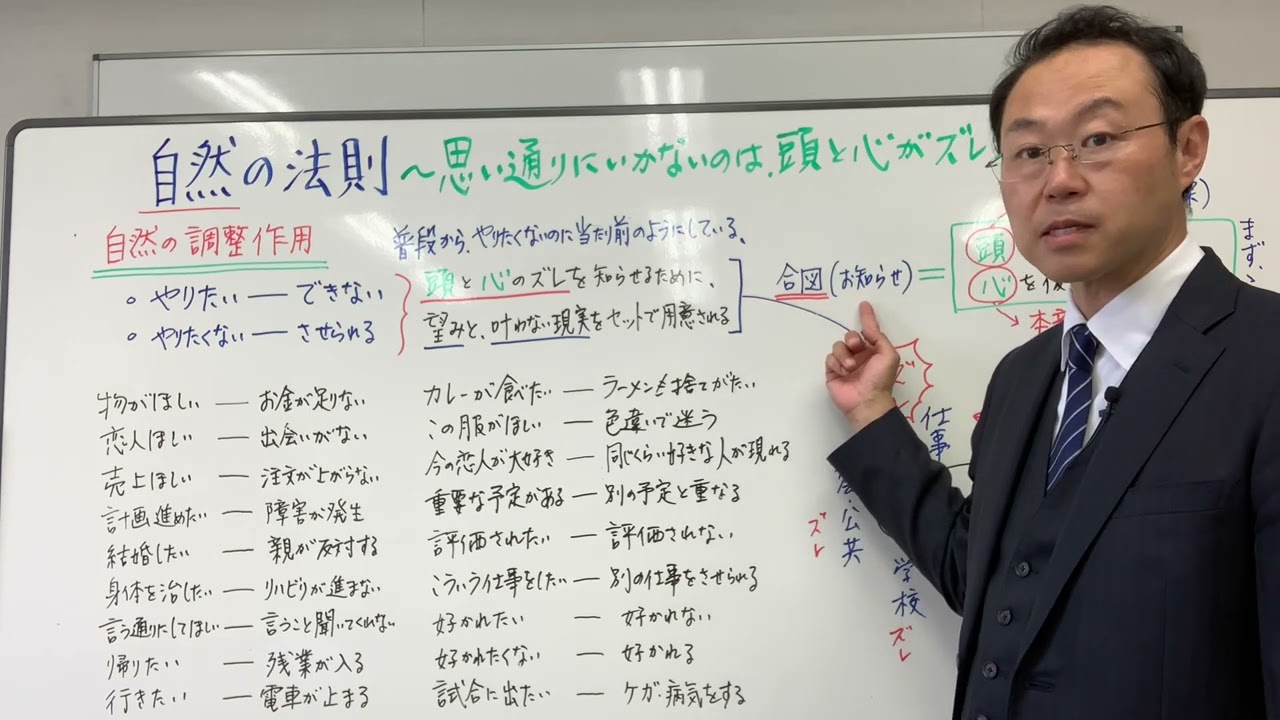 自然の法則 〜思い通りにいかないのは、頭と心がズレ
自然の調整作用
普段から、やりたくないのに当たり前のようにしている、
○ やりたい ― できない
○ やりたくない ― させられる
頭と心のズレを知らせるために、
望みと、叶わない現実をセットで用意される
合図(お知らせ) =
頭
心を
まず、
物がほしい ― お金が足りない
恋人ほしい ― 出会いがない
売上ほしい ― 注文が上がらない
計画進めたい ― 障害が発生
結婚したい ― 親が反対する
身体を治したい ― リハビリが進まない
言う通りにしてほしい ― 言うこと聞いてくれない
帰りたい ― 残業が入る
行きたい ― 電車が止まる
カレーが食べたい ― ラーメンも捨てがたい
この服がほしい ― 色違いで迷う
今の恋人が大好き ― 同じくらい好きな人が現れる
重要な予定がある ― 別の予定と重なる
評価されたい ― 評価されない
こういう仕事をしたい ― 別の仕事をさせられる
好かれたい ― 好かれない
好かれたくない ― 好かれる
試合に出たい ― ケガ・病気をする
仕事
公共
ズレ
学校
ズレ